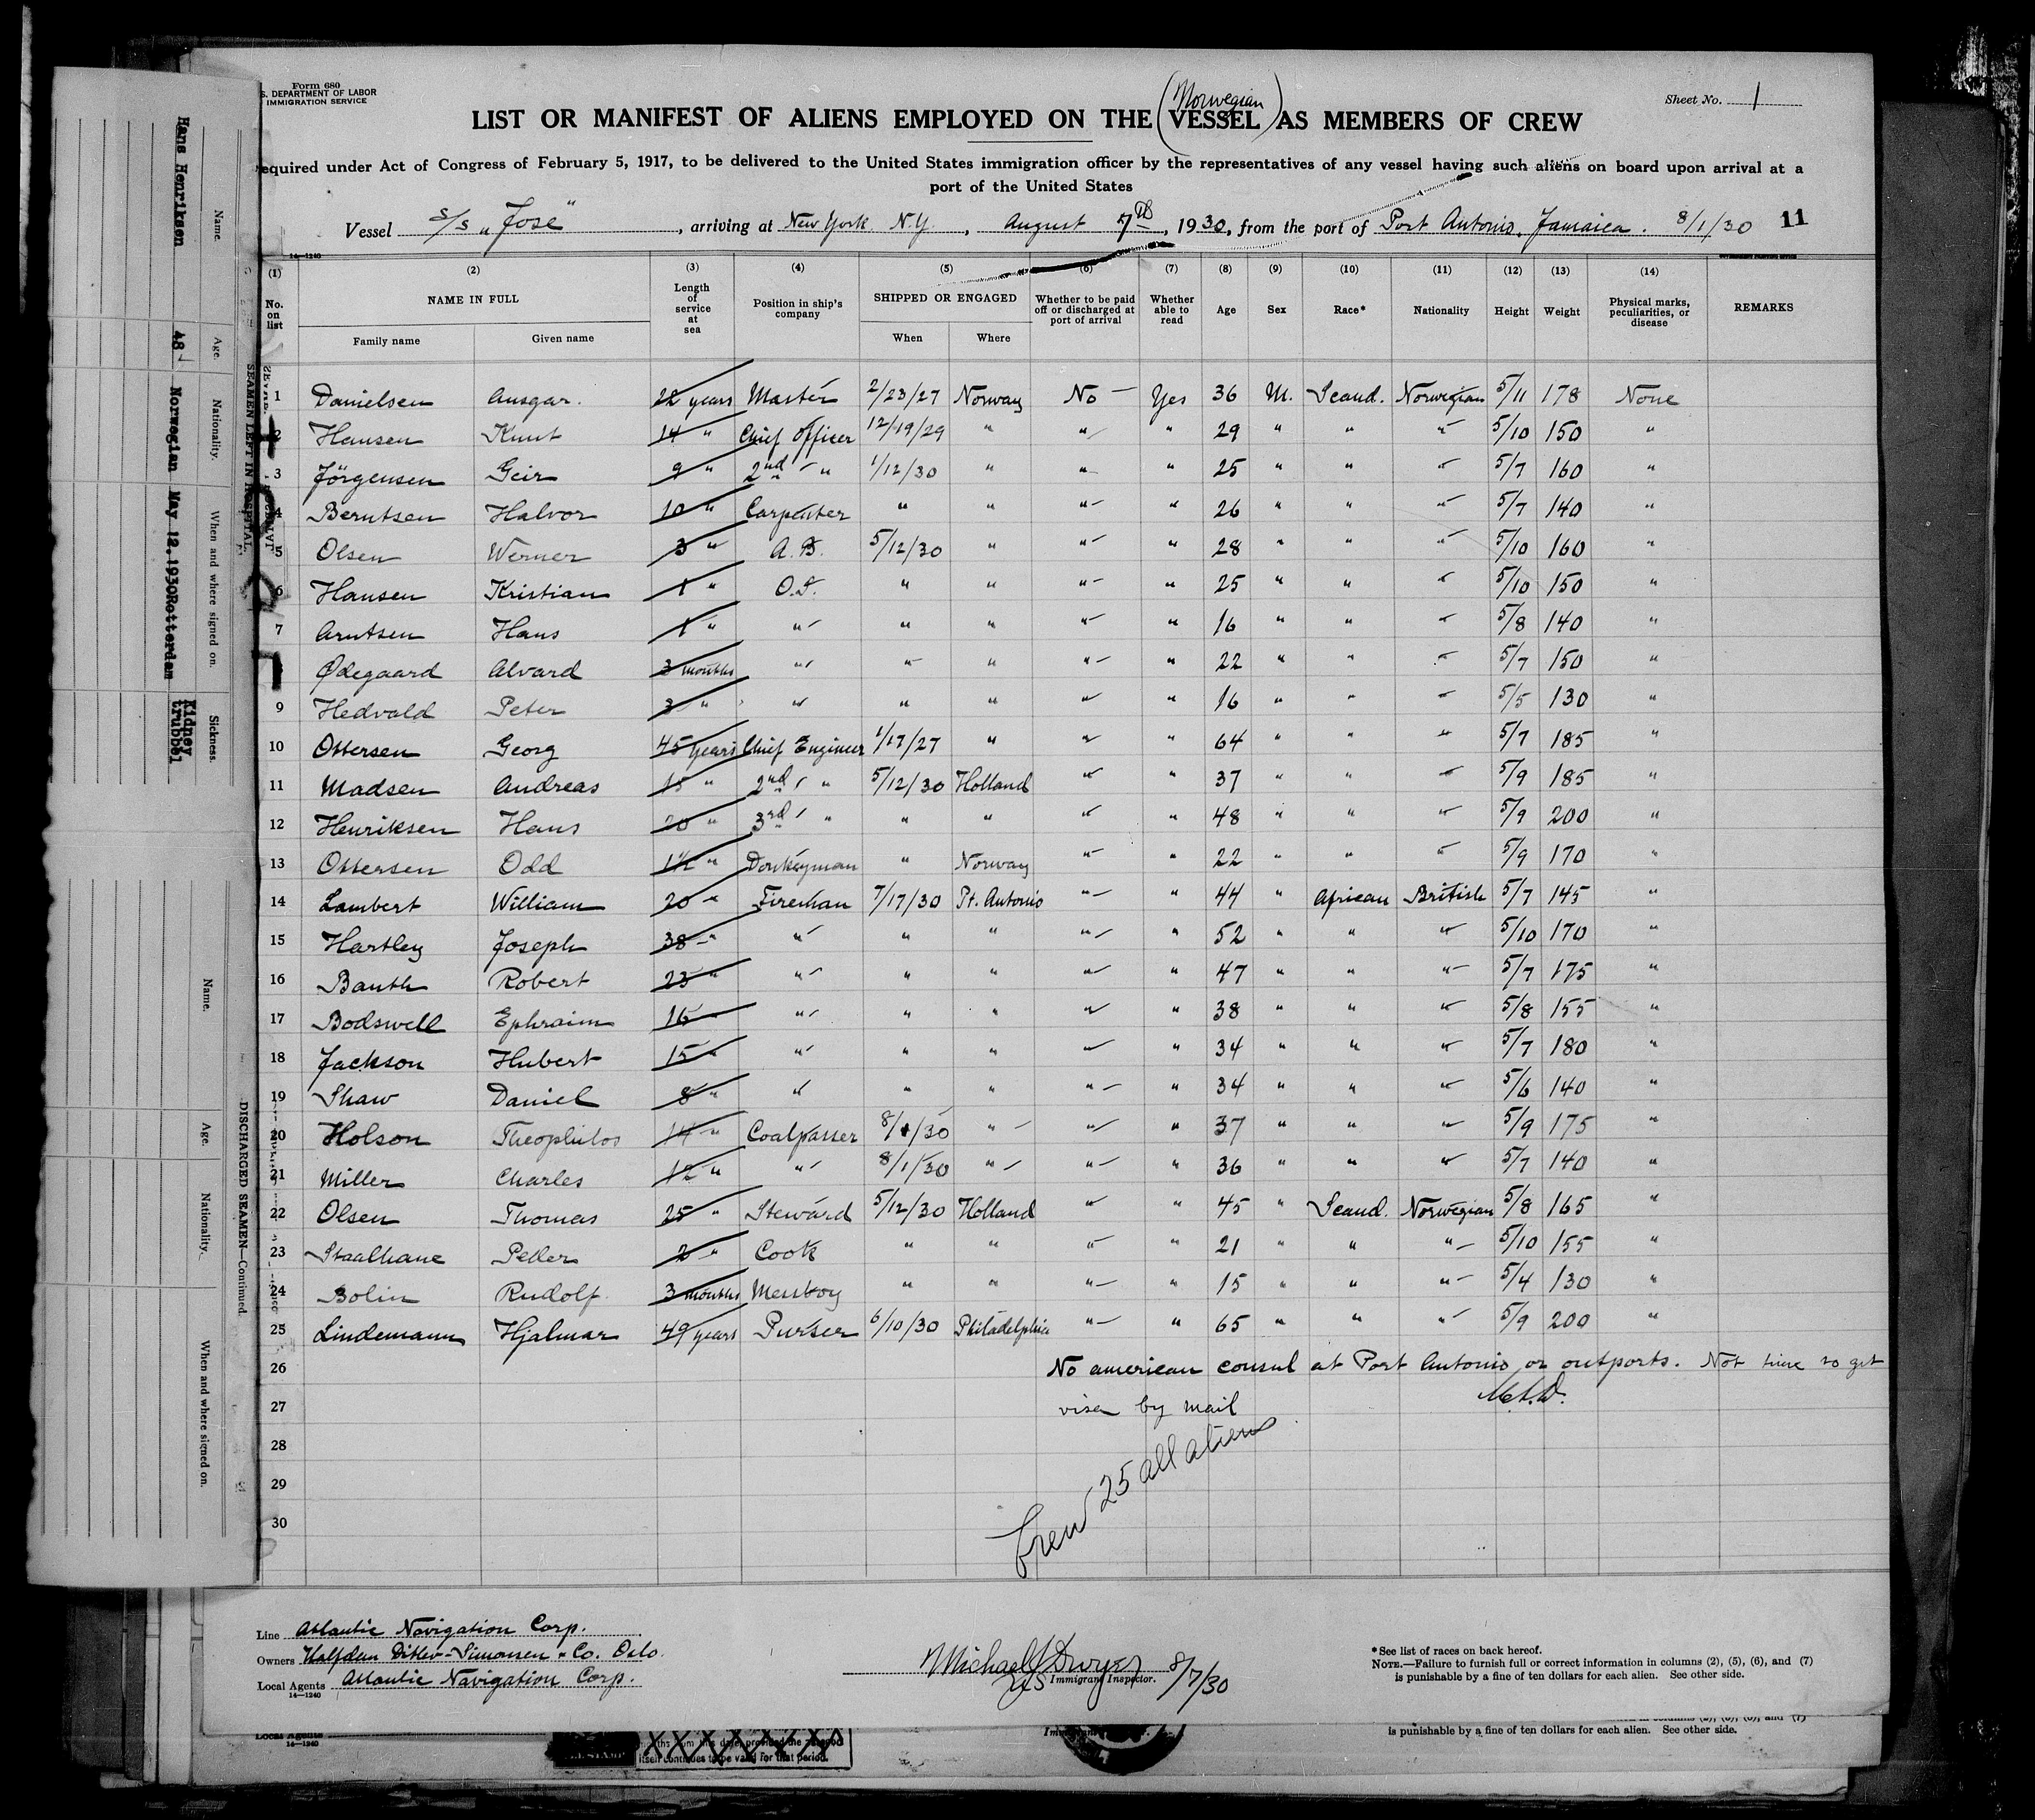 Form 680
S. DEPARTMENT OF LABOR
IMMIGRATION SERVICE
Sheet No. 1
(Norwegian)
LIST OR MANIFEST OF ALIENS EMPLOYED ON THE VESSEL AS MEMBERS OF CREW
equired under Act of Congress of February 5, 1917, to be delivered to the United States immigration officer by the representatives of any vessel having such aliens on board upon arrival at a
port of the United States
Vessel S/S "Jose", arriving at New York N.Y., August 7th, 1930, from the port of Port Antonio, Jamaica. 8/1/30 11
14—1240
(1) (2) (3) (4) (5) (6) (7) (8) (9) (10) (11) (12) (13) (14)
No. on list NAME IN FULL Length of service at sea Position in ship's company SHIPPED OR ENGAGED Whether to be paid off or discharged at port of arrival Whether able to read Age Sex Race* Nationality Height Weight Physical marks, peculiarities, or disease REMARKS
Family name Given name When Where
1 Danielsen Ansgar. 22 years Master 2/23/27 Norway No — Yes 36 M. Scand. Norwegian 5/11 178 None
2 Hansen Knut 14 " Chief Officer 12/19/29 " " " 29 " " " 5/10 150 "
3 Jörgensen Geir 9 " 2nd " 1/12/30 " " " 25 " " " 5/7 160 "
4 Berntsen Halvor 10 " Carpenter " " " " 26 " " " 5/7 140 "
5 Olsen Werner 3 " A.B. 5/12/30 " " " 28 " " " 5/10 160 "
6 Hansen Kristian 1 " O.S. " " " " 25 " " " 5/10 150 "
7 Arntsen Hans 1 " " " " " " 16 " " " 5/8 140 "
Ødegaard Alvard 3 months " " " " " 22 " " " 5/7 150 "
9 Hedvald Peter 3 " " " " " " 16 " " " 5/5 130 "
10 Ottersen Georg 45 years Chief Engineer 1/17/27 " " " 64 " " " 5/7 185 "
11 Madsen Andreas 15 " 2nd " 5/12/30 Holland " " 37 " " " 5/9 185 "
12 Henriksen Hans 20 " 3rd " " " " " 48 " " " 5/9 200 "
13 Ottersen Odd 1½ " Donkeyman " Norway " " 22 " " " 5/9 170 "
14 Lambert William 20 " Fireman 7/17/30 Pt. Antonio " " 44 " African British 5/7 145 "
15 Hartley Joseph 38 " " " " " " 52 " " " 5/10 170 "
16 Banth Robert 23 " " " " " " 47 " " " 5/7 175 "
17 Bodswell Ephraim 16 " " " " " 38 " " " 5/8 155 "
18 Jackson Hubert 15 " " " " " " 34 " " " 5/7 180 "
19 Shaw Daniel 8 " " " " " " 34 " " " 5/6 140 "
20 Holson Theophilos 14 " Coalpasser 8/1/30 " " " 37 " " " 5/9 175 "
21 Miller Charles 12 " " 8/1/30 " " " 36 " " " 5/7 140 "
22 Olsen Thomas 25 " Steward 5/12/30 Holland " " 45 " Scand. Norwegian 5/8 165 "
23 Staalhane Peder 2 " Cook " " " " 21 " " " 5/10 155 "
24 Bolin Rudolf. 3 months Messboy " " " " 15 " " " 5/4 130 "
25 Lindemann Hjalmar 49 years Purser 6/10/30 Philadelphia " " 65 " " " 5/9 200 "
26 No american consul at Port Antonio or outports. Not time to get
27 visa by mail
28
29
30
Crew 25 all aliens
Line Atlantic Navigation Corp.
Owners Halfdan Ditlev-Simonsen & Co. Oslo.
Local Agents Atlantic Navigation Corp.
14—1240
Michael J Dwyer 8/7/30
US Immigrant Inspector.
*See list of races on back hereof.
NOTE.—Failure to furnish full or correct information in columns (2), (5), (6), and (7)
is punishable by a fine of ten dollars for each alien. See other side.
Local Agents
14—1240
is punishable by a fine of ten dollars for each alien. See other side.
months from this date, provided the
itself continues to be valid for that period.
SEAMEN LEFT IN HOSPITAL.
Name. Age. Nationality. When and where signed on. Sickness.
Hans Henriksen 48 Norwegian May 12.1930 Rotterdam Kidney trubbel
DISCHARGED SEAMEN—Continued.
Name. Age. Nationality. When and where signed on.